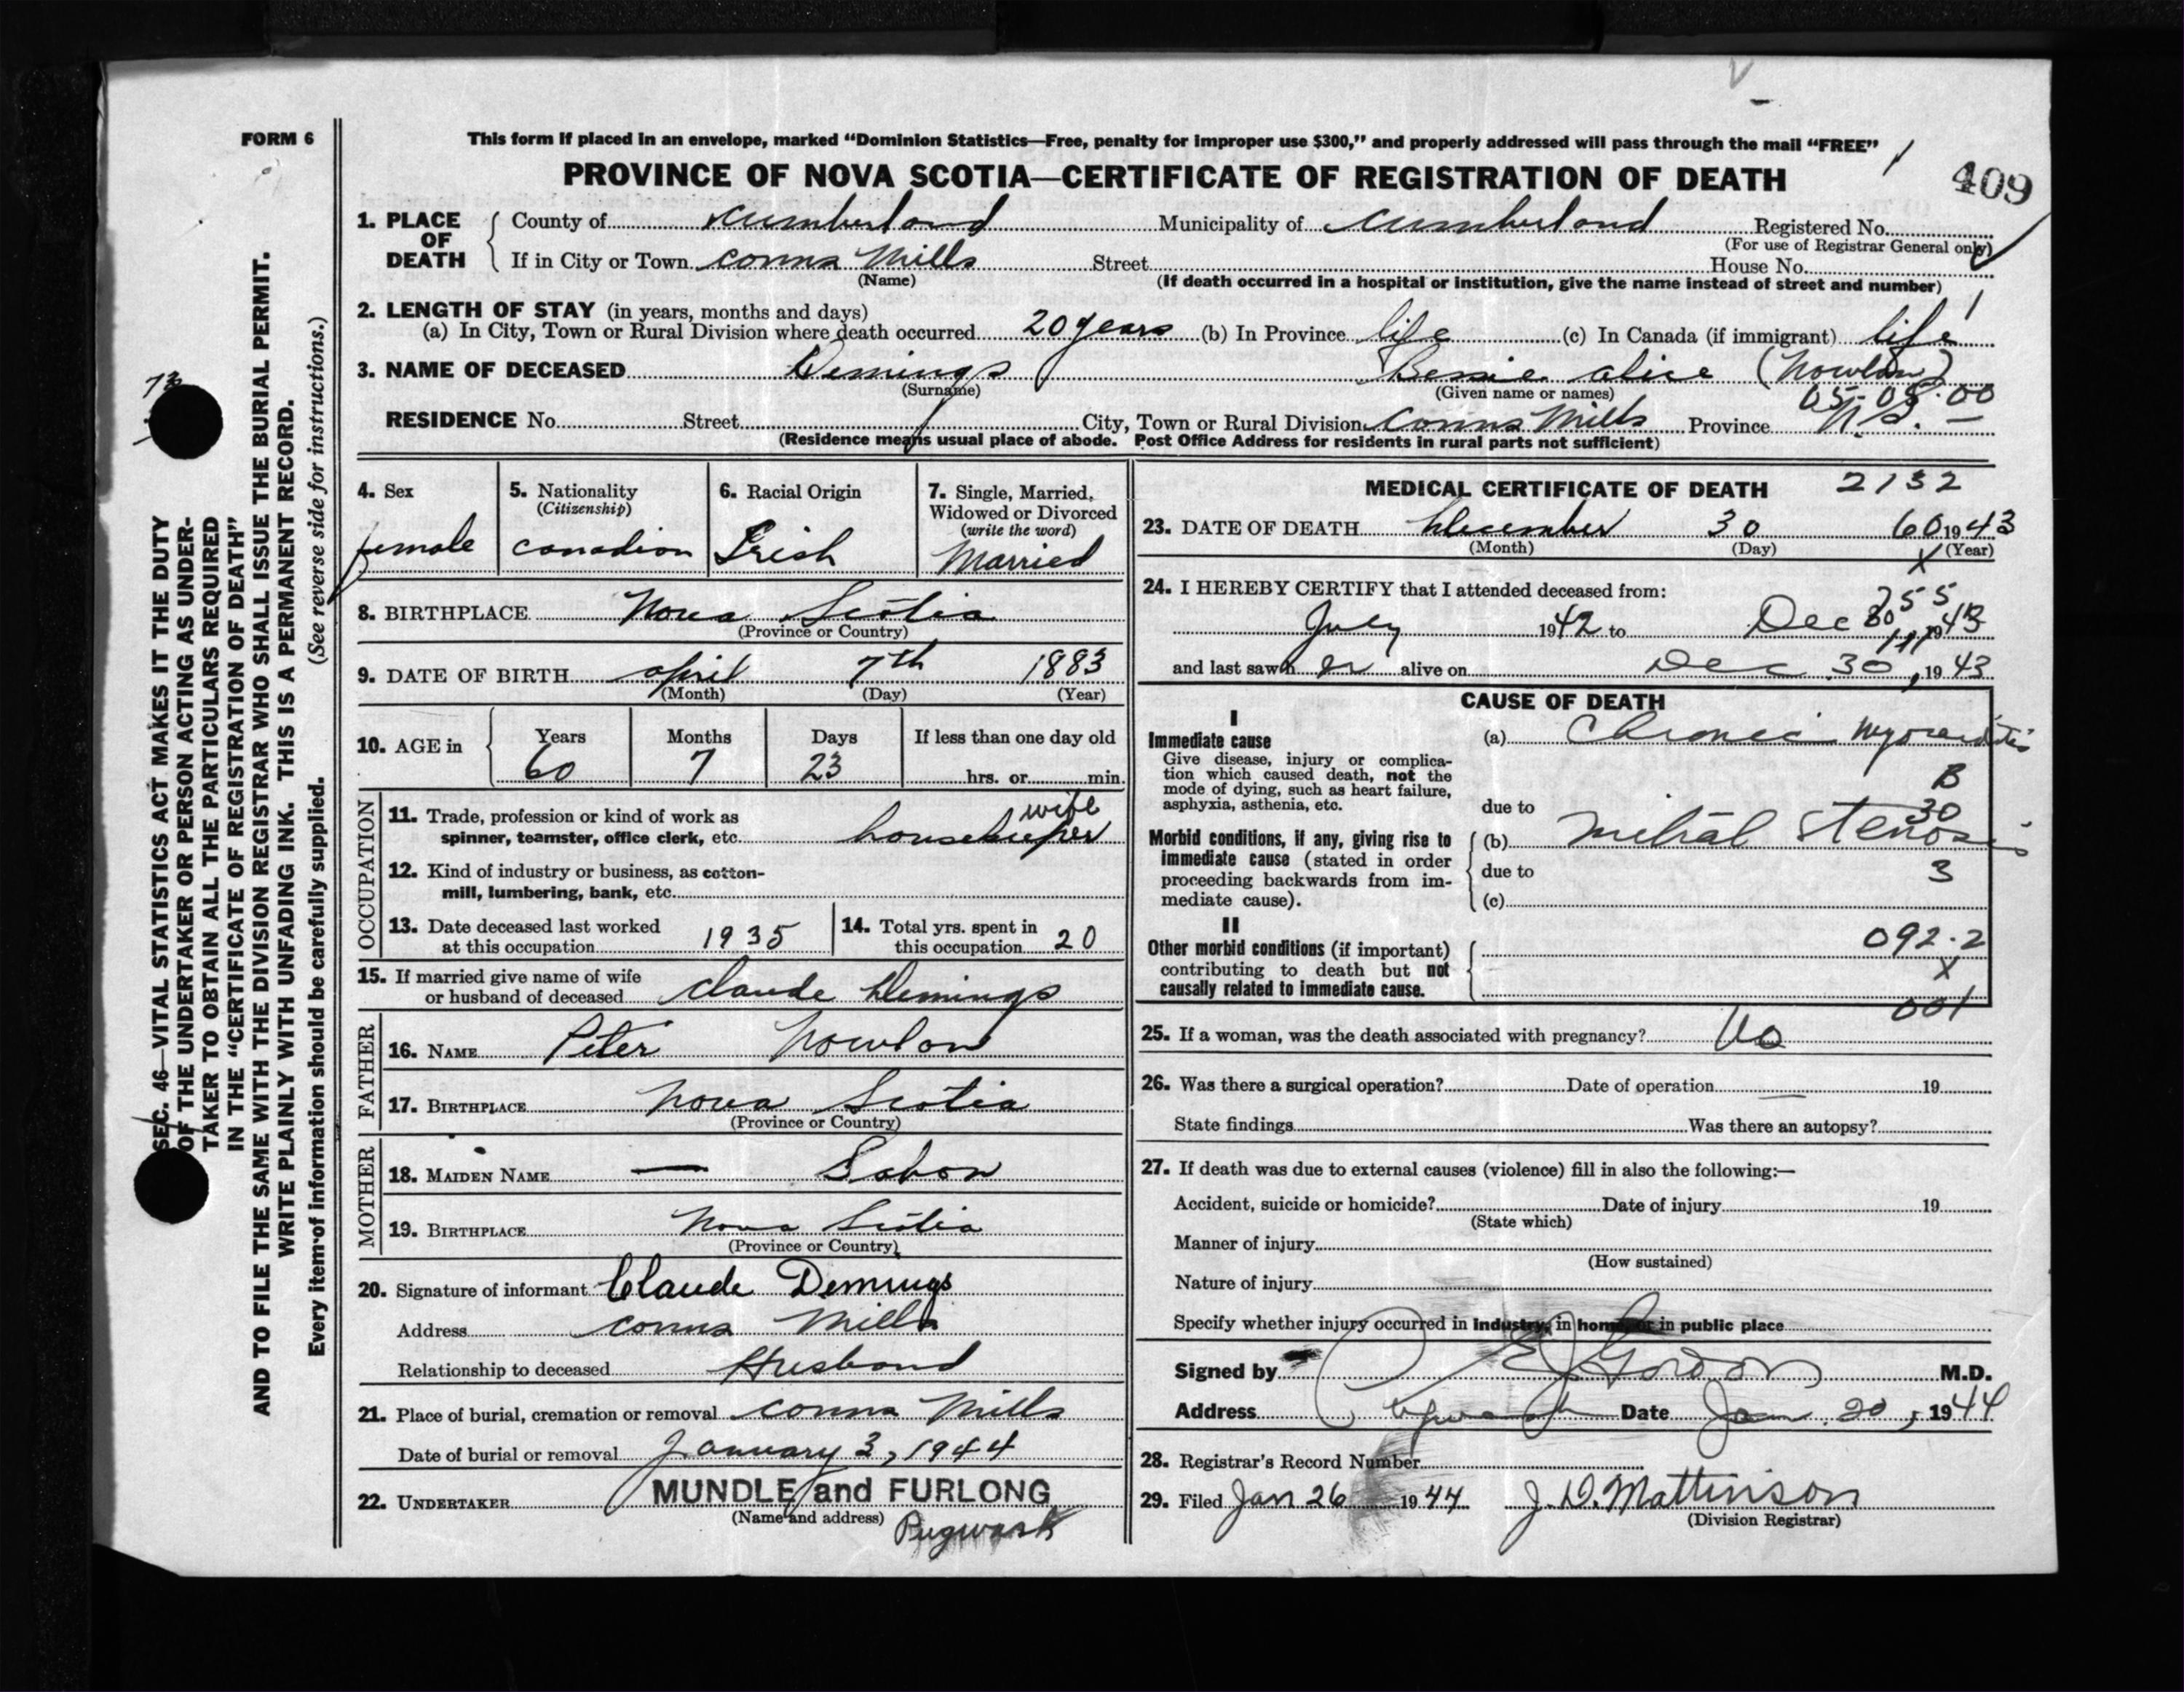 FORM 6
This form if placed in an envelope, marked “Dominion Statistics—Free, penalty for improper use $300,” and properly addressed will pass through the mail “FREE”
PROVINCE OF NOVA SCOTIA—CERTIFICATE OF REGISTRATION OF DEATH
409
1. PLACE OF DEATH
County of Cumberland Municipality of Cumberland Registered No.
(For use of Registrar General only)
If in City or Town Conns Mills Street House No.
(Name) (If death occurred in a hospital or institution, give the name instead of street and number)
2. LENGTH OF STAY (in years, months and days)
(a) In City, Town or Rural Division where death occurred 20 years (b) In Province life (c) In Canada (if immigrant) life
3. NAME OF DECEASED Demings Bessie Alice (Nowlan)
(Surname) (Given name or names)
05-08.00
RESIDENCE No. Street City, Town or Rural Division Conns Mills Province N.S. —
(Residence means usual place of abode. Post Office Address for residents in rural parts not sufficient)
4. Sex
female
5. Nationality
(Citizenship)
Canadian
6. Racial Origin
Irish
7. Single, Married,
Widowed or Divorced
(write the word)
Married
8. BIRTHPLACE Nova Scotia
(Province or Country)
9. DATE OF BIRTH April 7th 1883
(Month) (Day) (Year)
10. AGE in
Years Months Days If less than one day old
60 7 23 hrs. or min.
OCCUPATION
11. Trade, profession or kind of work as
spinner, teamster, office clerk, etc. housekeeper wife
12. Kind of industry or business, as cotton-
mill, lumbering, bank, etc.
13. Date deceased last worked
at this occupation 1935
14. Total yrs. spent in
this occupation 20
15. If married give name of wife
or husband of deceased Claude Demings
FATHER
16. NAME Peter Nowlan
17. BIRTHPLACE Nova Scotia
(Province or Country)
MOTHER
18. MAIDEN NAME —
19. BIRTHPLACE Nova Scotia
(Province or Country)
20. Signature of informant Claude Demings
Address Conns Mills
Relationship to deceased Husband
21. Place of burial, cremation or removal Conns Mills
Date of burial or removal January 3, 1944
22. UNDERTAKER MUNDLE and FURLONG
(Name and address) Pugwash
MEDICAL CERTIFICATE OF DEATH 2132
23. DATE OF DEATH December 30 60 1943
(Month) (Day) X (Year)
24. I HEREBY CERTIFY that I attended deceased from:
July 1942 to Dec 30 1943
and last saw her alive on Dec 30, 1943
CAUSE OF DEATH
I
Immediate cause
Give disease, injury or complica-
tion which caused death, not the
mode of dying, such as heart failure,
asphyxia, asthenia, etc.
(a) Chronic Myocarditis
B
due to
30
Morbid conditions, if any, giving rise to
immediate cause (stated in order
proceeding backwards from im-
mediate cause).
(b) Mitral Stenosis
due to 3
(c)
II
Other morbid conditions (if important)
contributing to death but not
causally related to immediate cause.
092.2
X
001
25. If a woman, was the death associated with pregnancy? No
26. Was there a surgical operation? Date of operation 19
State findings Was there an autopsy?
27. If death was due to external causes (violence) fill in also the following:—
Accident, suicide or homicide? Date of injury 19
(State which)
Manner of injury
(How sustained)
Nature of injury
Specify whether injury occurred in industry, in home, or in public place
Signed by E J Gordon M.D.
Address Pugwash Date Jan. 20, 1944
28. Registrar's Record Number
29. Filed Jan 26 1944 J. D. Mattinson
(Division Registrar)
SEC. 46—VITAL STATISTICS ACT MAKES IT THE DUTY
OF THE UNDERTAKER OR PERSON ACTING AS UNDER-
TAKER TO OBTAIN ALL THE PARTICULARS REQUIRED
IN THE “CERTIFICATE OF REGISTRATION OF DEATH”
AND TO FILE THE SAME WITH THE DIVISION REGISTRAR WHO SHALL ISSUE THE BURIAL PERMIT.
WRITE PLAINLY WITH UNFADING INK. THIS IS A PERMANENT RECORD.
Every item of information should be carefully supplied. (See reverse side for instructions.)